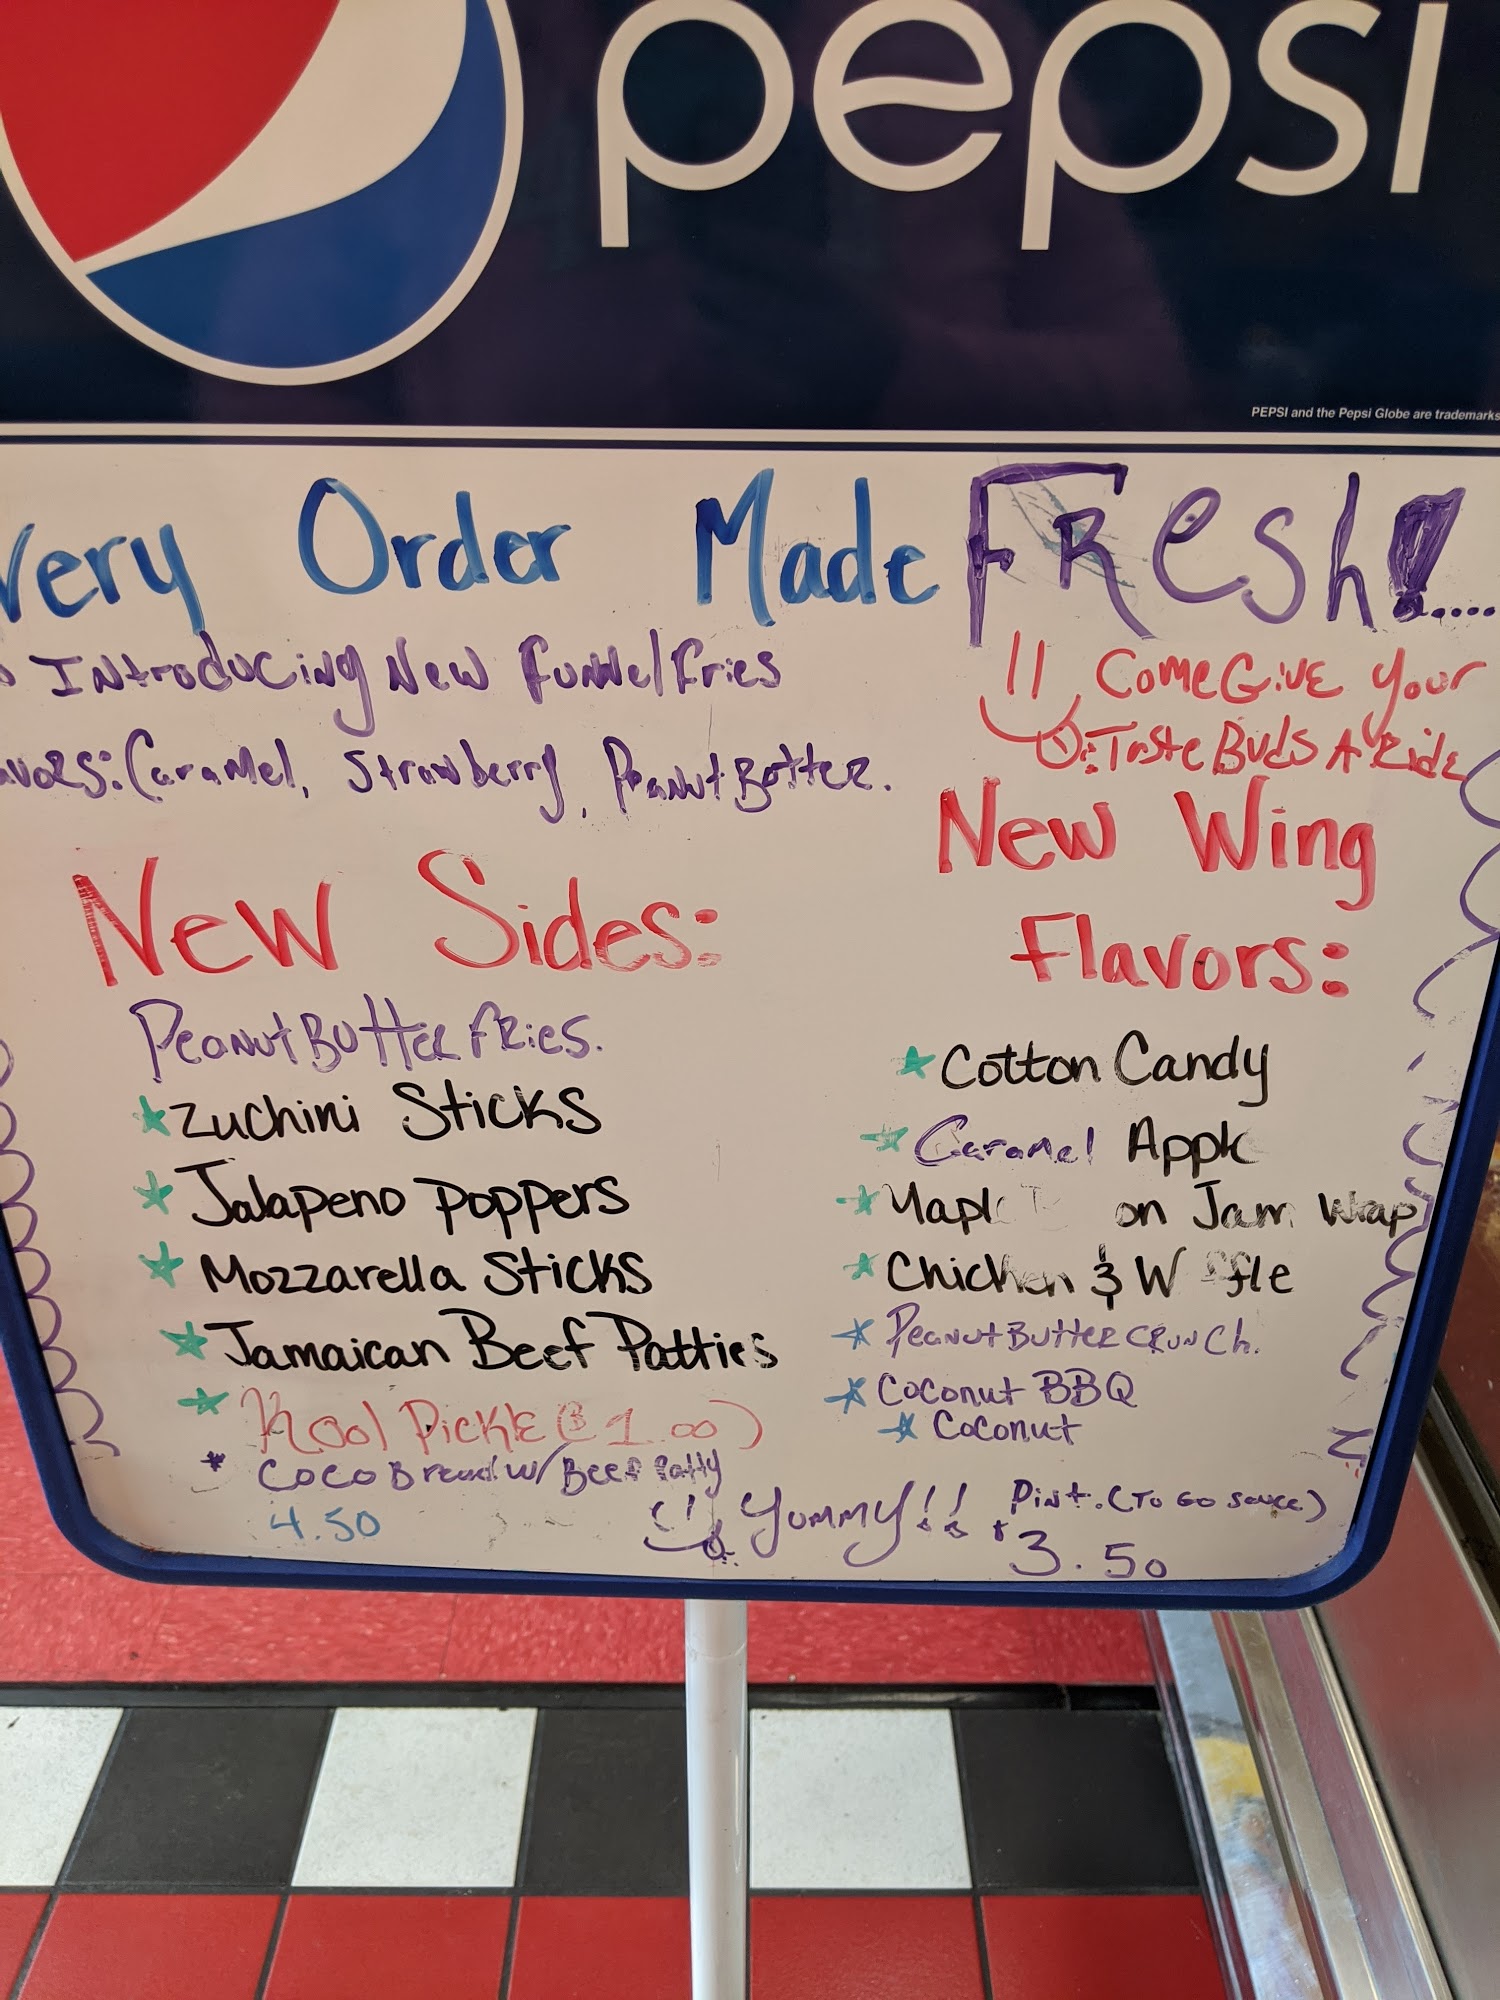 pepsi
PEPSI and the Pepsi Globe are trademarks
very Order Made FResh!.....
Introducing New Funnel Fries
avors: Caramel, Strawberry, Peanut Butter.
Come Give Your
Taste Buds A Ride
New Sides:
Peanut Butter Fries.
Zuchini Sticks
Jalapeno Poppers
Mozzarella Sticks
Jamaican Beef Patties
Kool Pickle ($1.00)
Coco Bread w/ Beef Patty
4.50
New Wing
Flavors:
Cotton Candy
Caramel Apple
Mapl on Jam Wrap
Chicken & W ffle
Peanut Butter Crunch.
Coconut BBQ
Coconut
Yummy!!
Pint. (To Go Sauce)
3.50